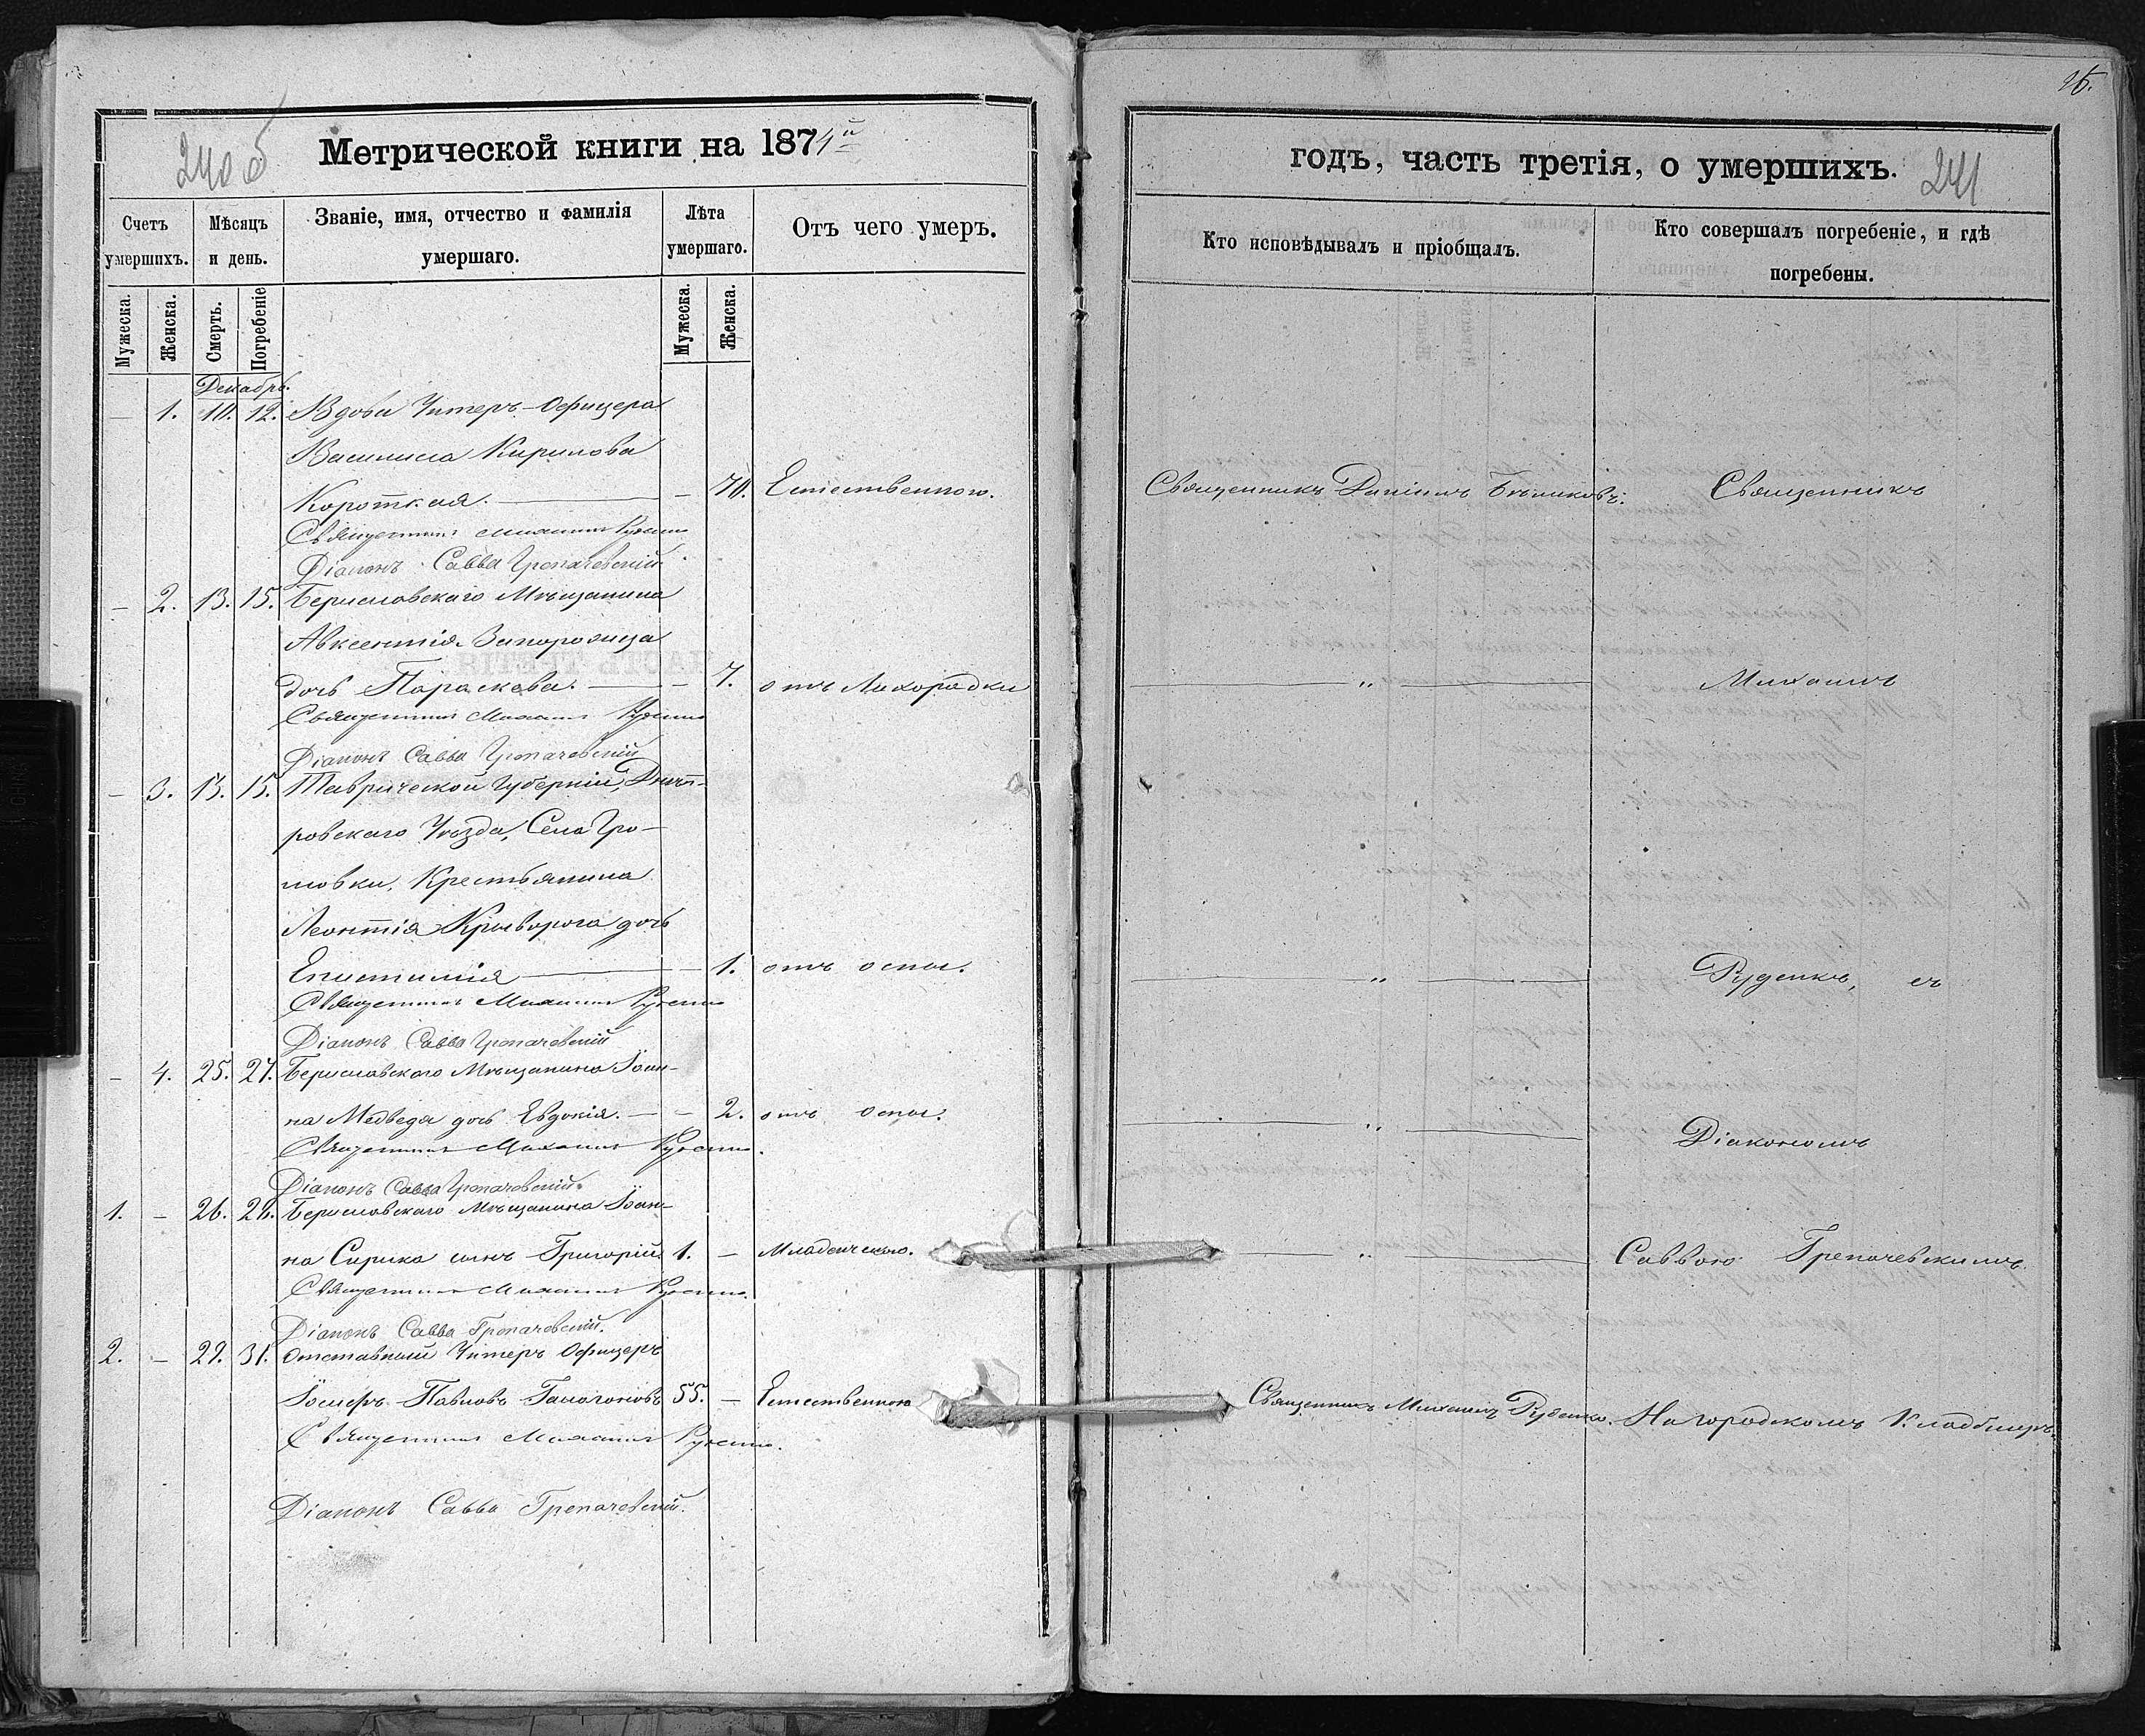 240 об
Метрической книги на 1874й
Счетъ умершихъ.
Мѣсяцъ и день.
Званіе, имя, отчество и фамилія умершаго.
Лѣта умершаго.
Отъ чего умеръ.
Мужеска.
Женска.
Смерть.
Погребеніе
Мужеска.
Женска.
Декабрь.
— 1. 10. 12. Вдова Унтеръ-Офицера
Василиса Кирилова
Короткая. — 70. Естественною.
Священникъ Михаилъ Руденко
Діаконъ Савва Грепачевскій
— 2. 13. 15. Бериславскаго Мѣщанина
Авксентія Запорожца
дочь Параскева. — 7. отъ Лихорадки
Священникъ Михаилъ Руденко
Діаконъ Савва Грепачевскій
— 3. 13. 15. Таврической Губерніи, Днѣп-
ровскаго Уѣзда, Села
Крестьянина
Леонтія Криворога дочь
Епистимія — 1. отъ оспы.
Священникъ Михаилъ Руденко
Діаконъ Савва Грепачевскій
— 4. 25. 27. Бериславскаго Мѣщанина Іоан-
на Медведя дочь Евдокія. — — 2. отъ оспы.
Священникъ Михаилъ Руденко.
Діаконъ Савва Грепачевскій.
1. — 26. 28. Бериславскаго Мѣщанина Іоан-
на Сирика сынъ Григорій 1. — Младенческою.
Священникъ Михаилъ Руденко.
Діаконъ Савва Грепачевскій.
2. — 29. 31. Отставный Унтеръ Офицеръ
Павловъ 55. — Естественною
Священникъ Михаилъ Руденко.
Діаконъ Савва Грепачевскій.
26.
годъ, часть третія, о умершихъ.
241
Кто исповѣдывалъ и пріобщалъ.
Кто совершалъ погребеніе, и гдѣ погребены.
Священникъ Даніилъ Бѣликовъ. Священникъ
— „ — Михаилъ
— „ — Руденко, съ
— „ — Діакономъ
— „ — Саввою Грепачевскимъ
Священникъ Михаилъ Руденко. На городскомъ Кладбищѣ.